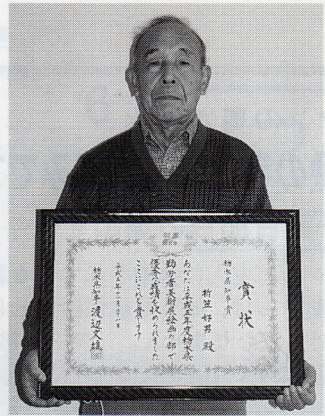 賞状
栃木県知事賞
折笠好男 殿
あなたは平成五年度栃木県
勤労者美術展絵画の部で
優秀な成績を収められました
ここにこれを賞します
平成五年十二月十一日
栃木県知事 渡辺文雄